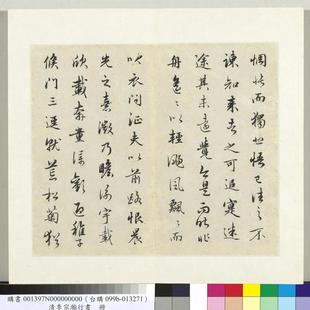 惆悵而獨悲悟已往之不
諫知來者之可追寔迷
途其未遠覺今是而昨非
舟遙〻以輕颺風飄〻而
吹衣問征夫以前路恨晨
光之熹微乃瞻衡宇載
欣載奔童僕歡迎稚子
候門三逕就荒松菊猶
購書 001397N000000000 (台購 099b-013271)
清李宗瀚行書 冊